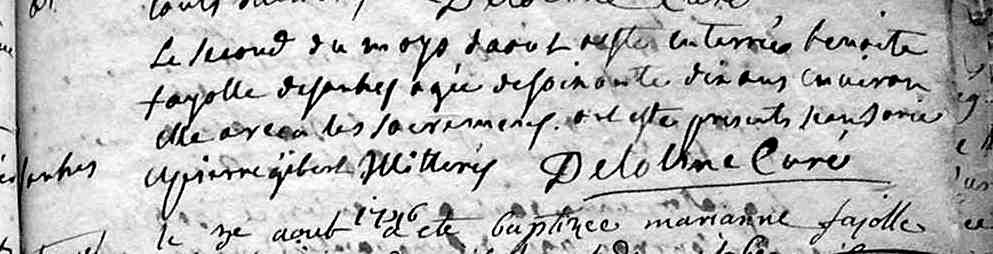 Delolme Curé
Le second du moys daout a este enterrée benoite
fayolle desanhes agée de soixante dix ans environ
elle a receu les sacremens. ont este presents Jean
et pierre gibert Mitterés Delolme Curé
le 3e aout 1726 a ete baptizée marianne fajolle